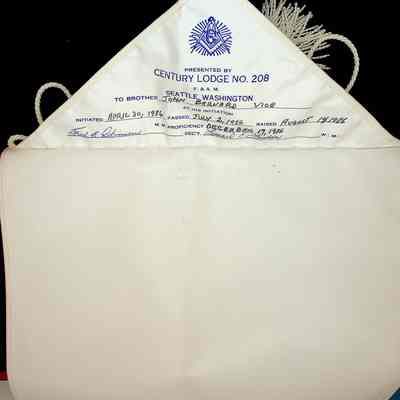 PRESENTED BY
CENTURY LODGE NO. 208
F. & A. M.
SEATTLE, WASHINGTON
TO BROTHER JOHN BERNARD VICE
AT HIS INITIATION
INITIATED APRIL 20, 1986 PASSED JULY 2, 1986 RAISED AUGUST 19, 1986
M. M. PROFICIENCY DECEMBER 17, 1986
SECT. W. M.